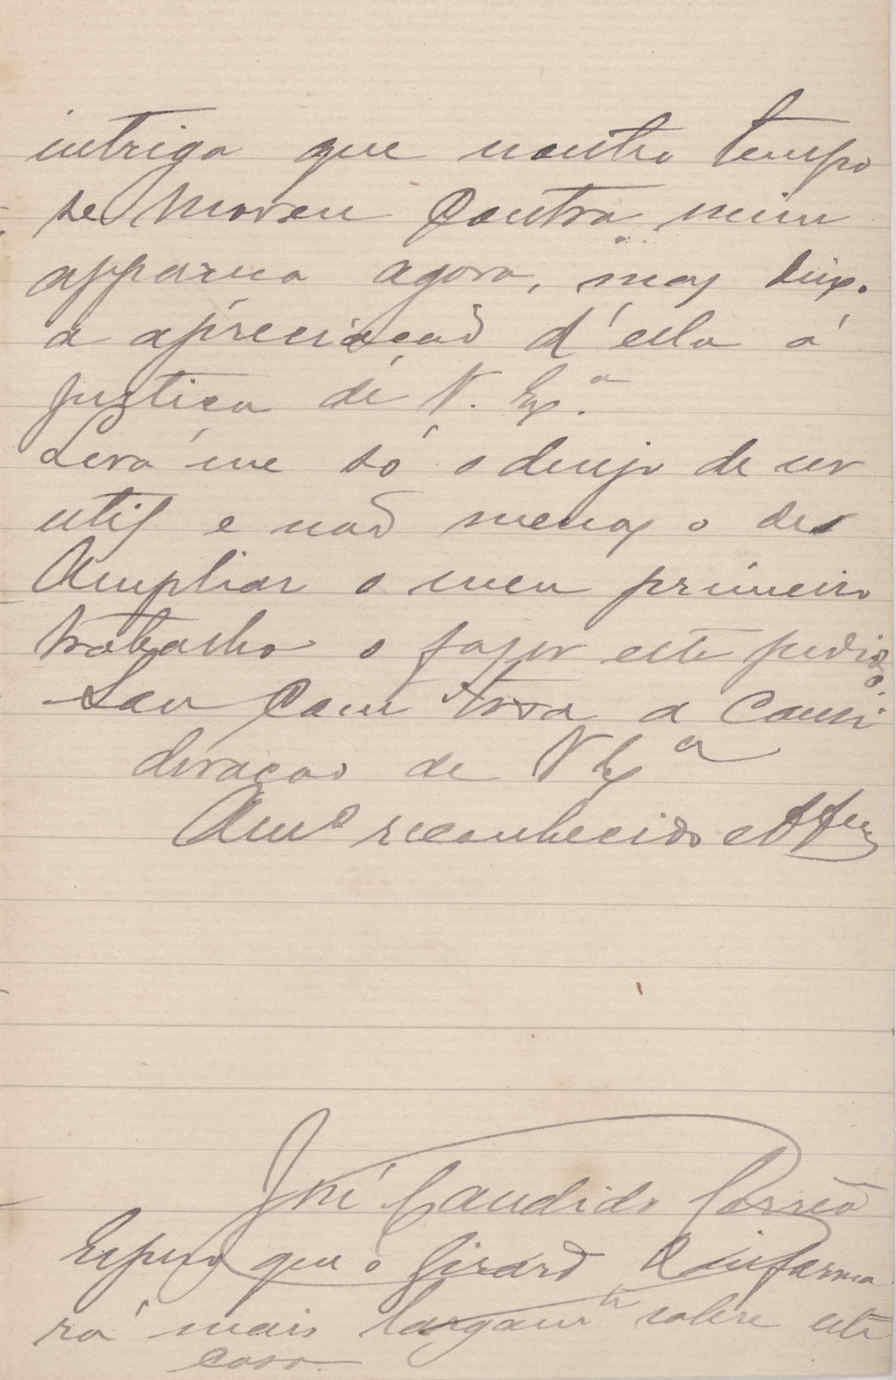 intriga que noutro tempo
se moveu Contra mim
appareça agora, mas deixo
a apreciação d'ella á
justiça de V. Exª.
Leva me só o desejo de ser
util e não menos o de
Ampliar o meu primeiro
trabalho o fazer este pedido.
Sou Com toda a Consi
deração de V Exª
Amº reconhecido e
José Candido Corrêa
Espero que o Girard o informa
rá mais largamte sobre este
caso.